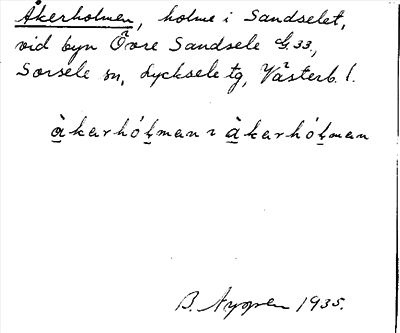 Åkerholmen, holme i Sandselet,
vid byn Övre Sandsele G.33.,
Sorsele sn, Lycksele tg, Västerb. l.
à̱karhóḻman ~ à̱karhóḻman
B. 1935.